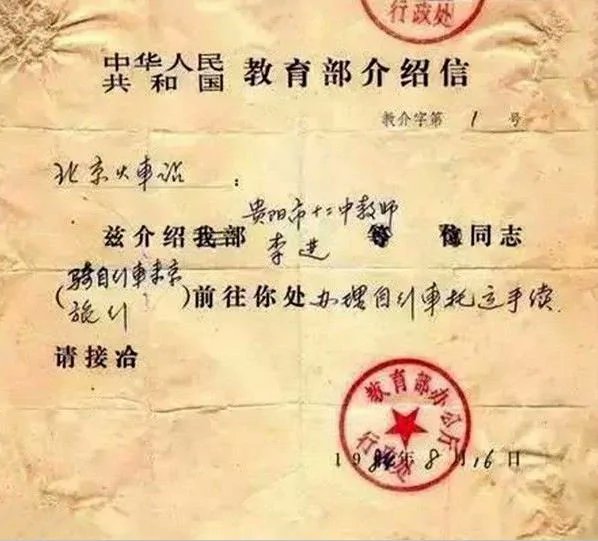 行政处
中华人民
共和国 教育部介绍信
教介字第 1 号
北京火車站：
贵阳市十二中教师
兹介绍我部 李进 等 位同志
(骑自行車来京
旅行)前往你处办理自行車托运手续
请接洽
教育部办公厅
行政处
19 年8月16日